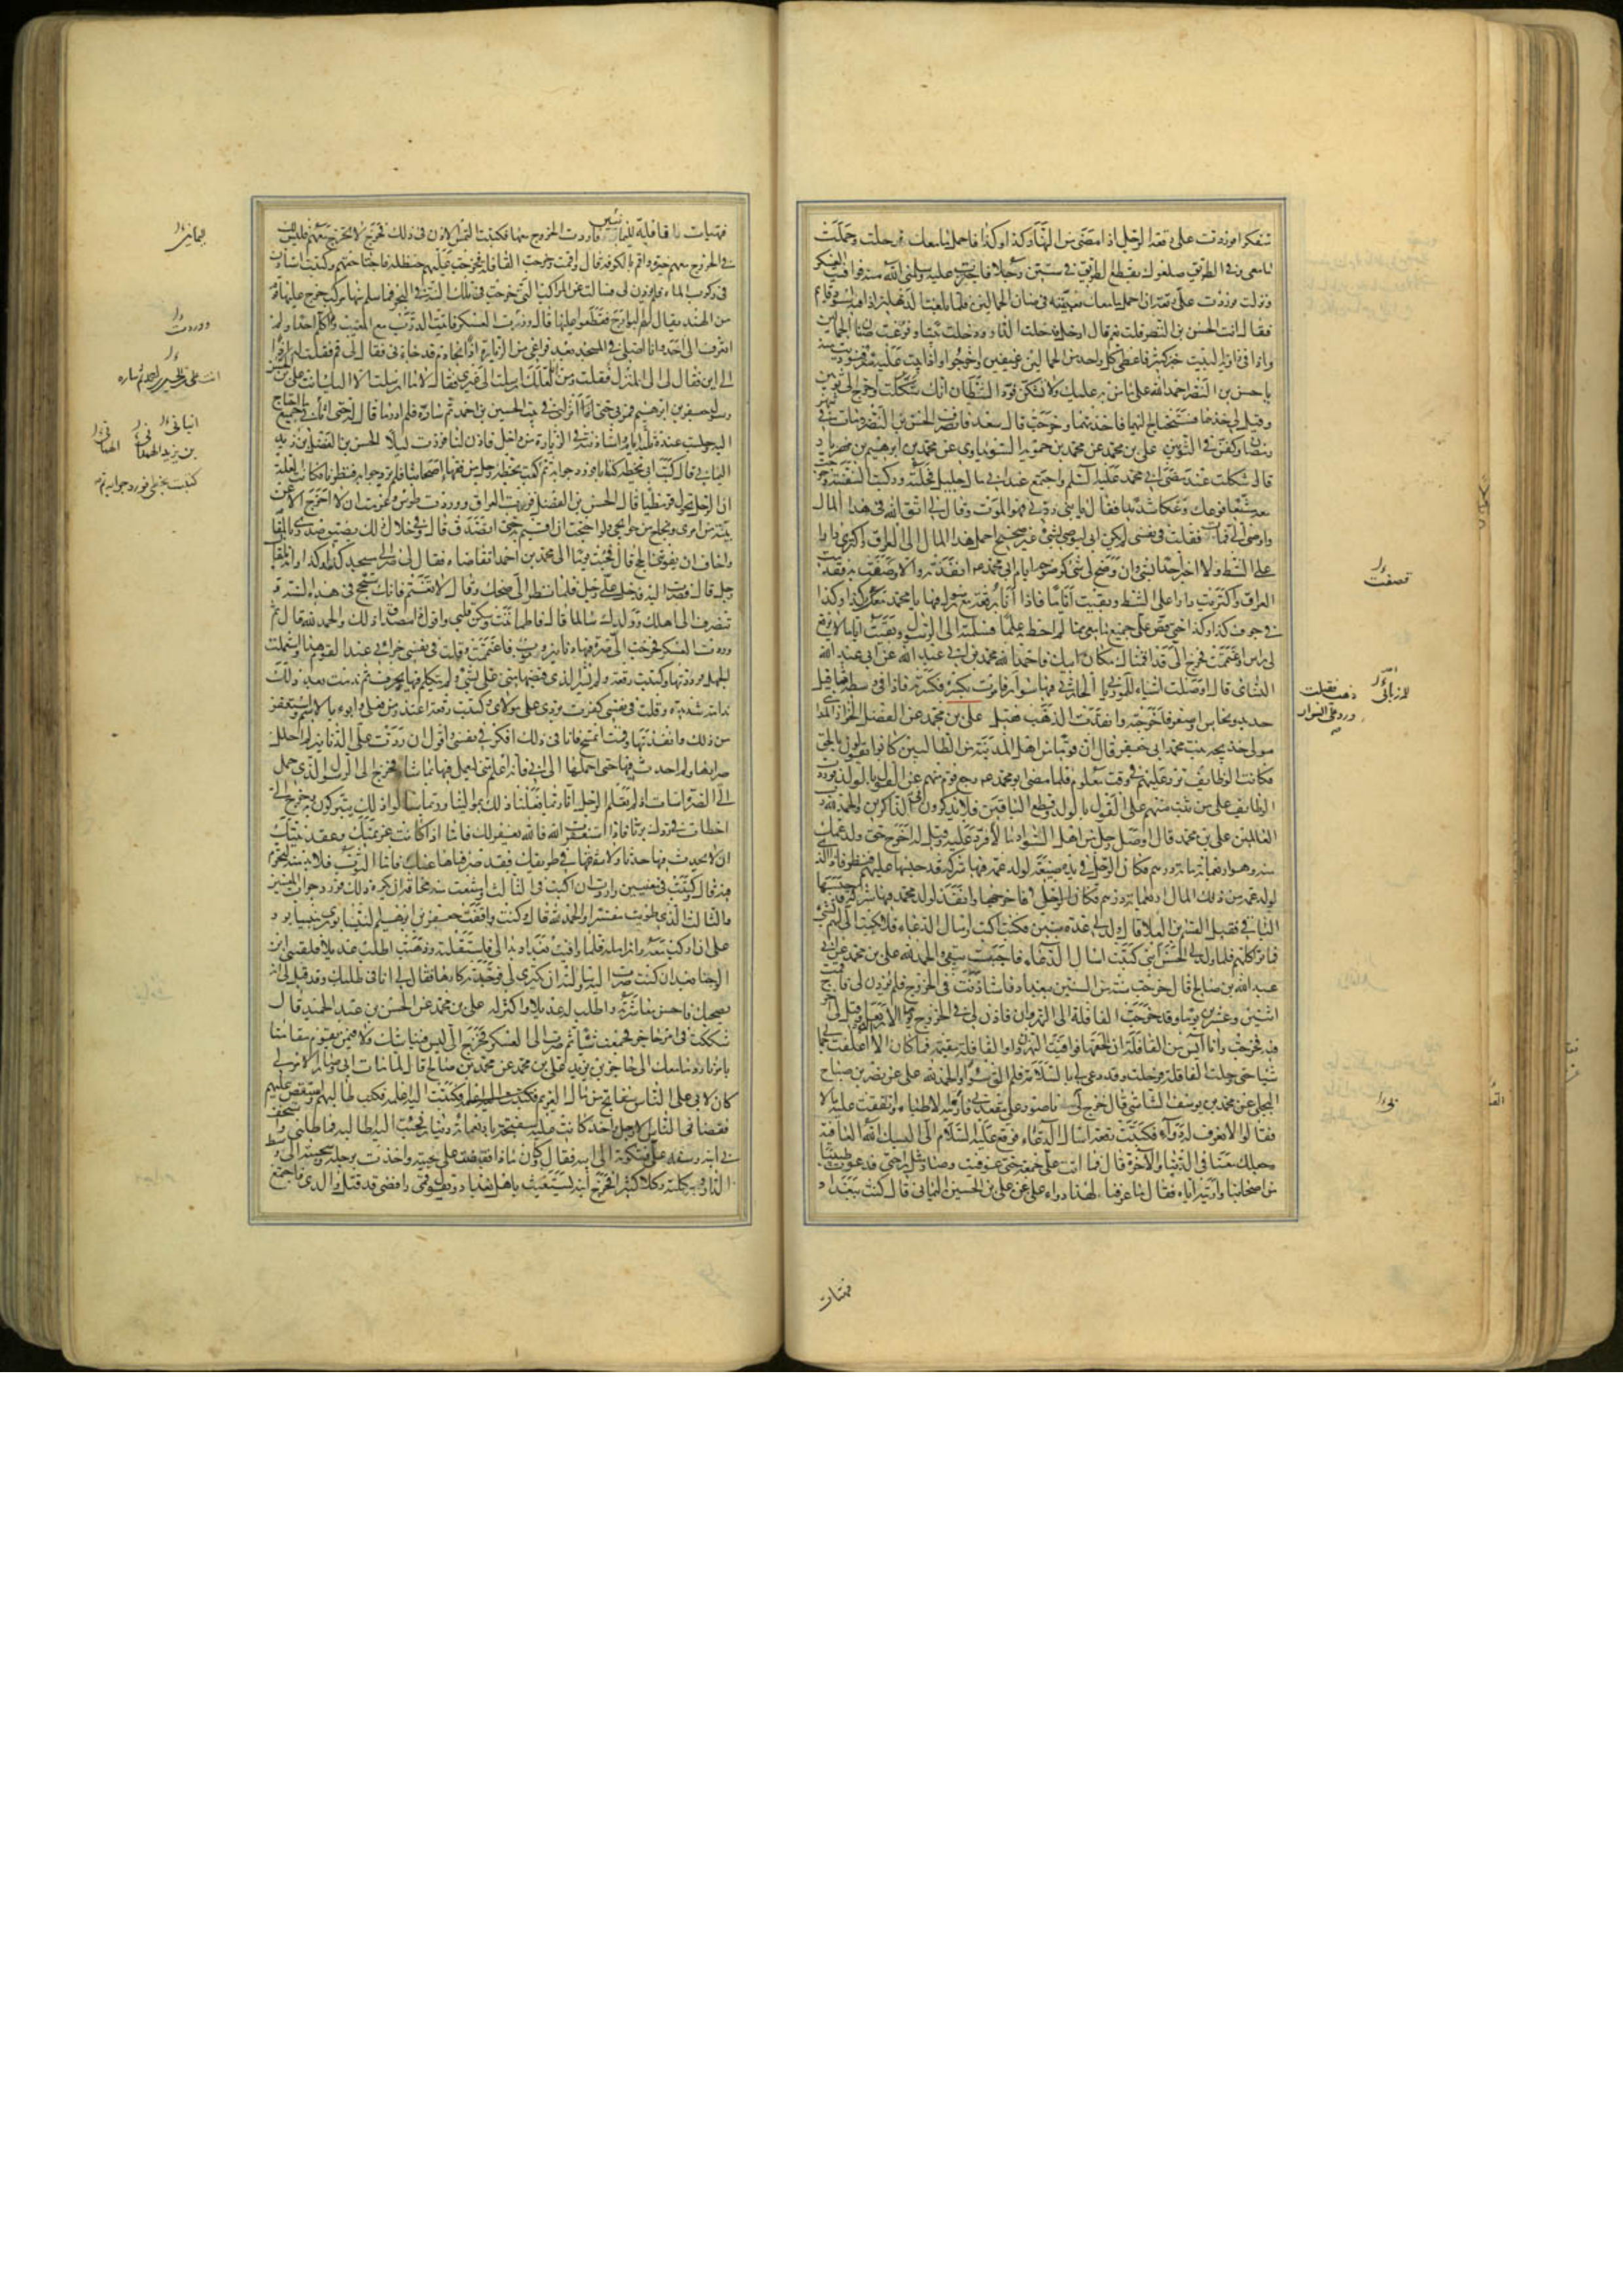 تتفكر اذ وردت على رقعة الرجل اذا مضى من النهار كذا وكذا فاحمل ما معك فرحلت وحملت
ما معي وفي الطريق صعلوك يقطع الطريق في ستين رجلا فاجتزت عليه وسلمني الله منه فوافيت العسكر
ونزلت فوردت على رقعة ان احمل ما معك فعبيته في صنان الحمالين فلما بلغت الدهليز اذا فيه اسود قائم
فقال انت الحسن بن النضر قلت نعم قال ادخل فدخلت الدار ودخلت بيتا وفرغت صنان الحمالين
واذا في زاوية البيت خبز كثير فاعطى كل واحد من الحمالين رغيفين واخرجوا واذا بيت عليه ستر فنوديت منه
يا حسن بن النضر احمد الله على ما من به عليك ولا تشكن فود الشيطان انك شككت واخرج الي ثوبين
وقيل لي خذهما فستحتاج اليهما فاخذتهما وخرجت قال سعد فانصرف الحسن بن النضر ومات في شهر
رمضان وكفن في الثوبين علي بن محمد عن محمد بن حمويه السويداوي عن محمد بن ابرهيم بن مهزيار
قال شككت عند مضي ابي محمد عليه السلم واجتمع عند ابي مال جليل فحمله وركب السفينة وخرجت
معه مشيعا فوعك وعكا شديدا فقال يا بني ردني فهو الموت وقال لي اتق الله في هذا المال
واوصى الي فمات فقلت في نفسي لم يكن ابي ليوصي بشئ غير صحيح احمل هذا المال الى العراق واكتري دارا
على الشط ولا اخبر احدا بشئ وان وضح لي شئ كوضوحه ايام ابي محمد عم انفذته والا قصفت به فقدمت
العراق واكتريت دارا على الشط وبقيت اياما فاذا انا برقعة مع رسول فيها يا محمد معك كذا وكذا
في جوف كذا وكذا حتى قص علي جميع ما معي مما لم احط به علما فسلمته الى الرسول وبقيت اياما لا يرفع
لي راس واغتممت فخرج الي قد اقمناك مكان ابيك فاحمد الله محمد بن ابي عبد الله عن ابي عبد الله
النسائي قال اوصلت اشياء للمرزباني الحارثي فيها سوار
فامرت بكسره فكسرته فاذا في وسطه مثاقيل
حديد ونحاس او صفر فاخرجته وانفذت الذهب فقبل علي بن محمد عن الفضل الخزاز المدايني
مولى خديجة بنت محمد ابي جعفر قال ان قوما من اهل المدينة من الطالبيين كانوا يقولون بالحق
فكانت الوظايف ترد عليهم في وقت معلوم فلما مضى ابو محمد عم رجع قوم منهم عن القول بالولد فوردت
الوظايف على من ثبت منهم على القول بالولد وقطع الباقين فلا يذكرون في الذاكرين والحمد لله رب
العالمين علي بن محمد قال اوصل رجل من اهل السواد مالا فرد عليه وقيل له اخرج حق ولد عمك
منه وهو اربعمائة درهم فكان الرجل في يده ضيعة لولد عمه فيها شركة قد حبسها عليهم فنظر فاذا الذي
لولد عمه من ذلك المال اربعمائة درهم فاخرجها وانفذ
الباقي فقبل القسم بن العلا قال ولد لي عدة بنين فكنت اكتب واسال الدعاء فلا يكتب الي لهم بشئ
فماتوا كلهم فلما ولد لي الحسن ابني كتبت اسال الدعاء فاجبت يبقى والحمد لله علي بن محمد عن ابي
عبد الله بن صالح قال خرجت سنة من السنين ببغداد فاستاذنت في الخروج فلم يؤذن لي فاقمت
اثنين وعشرين يوما وقد خرجت القافلة الى النهروان فاذن لي في الخروج يوم الاربعاء وقيل لي اخرج
فيه فخرجت وانا آيس من القافلة ان الحقها فوافيت النهروان والقافلة مقيمة فما كان الا ان اعلفت جمالي
شيئا حتى رحلت القافلة فرحلت وقد دعى لي بالسلامة فلم الق سوءا والحمد لله علي عن نضر بن صباح
البجلي عن محمد بن يوسف الشاشي قال خرج لي ناصور على مقعدتي فاريته الاطباء وانفقت عليه مالا
فقالوا لا نعرف له دواء فكتبت رقعة اسال الدعاء فوقع عليه السلام الي البسك الله العافية
وجعلك معنا في الدنيا والآخرة قال فما اتت علي جمعة حتى عوفيت وصار مثل راحتي فدعوت طبيبا
من اصحابنا واريته اياه فقال ما عرفنا لهذا دواء علي عن علي بن الحسين اليماني قال كنت ببغداد
فتهيات
قصفت
للمرزباني
ذهب فقبلت
ورد على السوار
فتهيات قافلة لليمانيين فاردت الخروج معها فكتبت التمس الاذن في ذلك فخرج لا تخرج معهم فليس لك
في الخروج معهم خيرة واقم بالكوفة قال واقمت وخرجت القافلة فخرجت عليهم حنظلة فاجتاحتهم وكتبت استاذن
في ركوب الماء فلم يؤذن لي فسالت عن المراكب التي خرجت في تلك السنة في البحر فما سلم منها مركب خرج عليها قوم
من الهند يقال لهم البوارح فقطعوا عليها قال وزرت العسكر فاتيت الدرب مع المغيب ولم اكلم احدا ولم
اتعرف الى احد وانا اصلي في المسجد بعد فراغي من الزيارة اذا بخادم قد جاءني فقال لي قم فقلت له اذن
الى اين فقال لي الى المنزل فقلت ومن انا لعلك ارسلت الى غيري فقال لا ما ارسلت الا اليك انت علي بن الحسين
رسول جعفر بن ابرهيم فمر بي حتى انزلني في بيت الحسين بن احمد ثم ساره فلم ادر ما قال له حتى اتاني بجميع ما احتاج
اليه وجلست عنده ثلثة ايام واستاذنته في الزيارة من داخل فاذن لنا فزرت ليلا الحسن بن الفضل بن زيد
اليماني قال كتب ابي بخطه كتابا فورد جوابه ثم كتب بخطه رجل من فقهاء اصحابنا فلم يرد جوابه فنظرنا فكانت العلة
ان الرجل تحول قرمطيا قال الحسن بن الفضل فزرت العراق ووردت طوس وعزمت ان لا اخرج الا عن
بينة من امري ونجاح من حوايجي ولو احتجت ان اقيم بها حتى اتصدق قال وفي خلال ذلك يضيق صدري بالمقام
واخاف ان يفوتني الحج قال فجئت يوما الى محمد بن احمد اتقاضاه فقال لي صر الى مسجد كذا وكذا وانه يلقاك
رجل قال فصرت اليه فدخل علي رجل فلما نظر الي ضحك وقال لا تغتم فانك ستحج في هذه السنة و
تنصرف الى اهلك وولدك سالما قال فاطماننت وسكن قلبي واقول ذا مصداق ذلك والحمد لله قال ثم
وردت العسكر فخرجت الي صرة فيها دنانير وثوب فاغتممت وقلت في نفسي جزائي عند القوم هذا واستعملت
الجهل فرددتها وكتبت رقعة ولم يشر الذي قبضها مني علي بشئ ولم يتكلم فيها بحرف ثم ندمت بعد ذلك
ندامة شديدة وقلت في نفسي كفرت بردي على مولاي وكتبت رقعة اعتذر من فعلي وابوء بالاثم واستغفر
من ذلك وانفذتها وقمت اتمسح فانا في ذلك افكر في نفسي واقول ان ردت علي الدنانير لم احلل
صرارها ولم احدث فيها حتى احملها الى ابي فانه اعلم مني ليعمل فيها بما شاء فخرج الى الرسول الذي حمل
الي الصرة اسات اذ لم تعلم الرجل انا ربما فعلنا ذلك بموالينا وربما سالونا ذلك يتبركون به وخرج الي
اخطات في ردك برنا فاذا استغفرت الله فالله يغفر لك فاما اذا كانت عزيمتك وعقد نيتك
ان لا تحدث فيها حدثا ولا تنفقها في طريقك فقد صرفناها عنك فاما الثوب فلا بد منه لتحرم
فيه قال وكتبت في معنيين واردت ان اكتب في الثالث وامتنعت منه مخافة ان يكره ذلك فورد جواب المعنيين
والثالث الذي طويت مفسرا والحمد لله قال وكنت وافقت جعفر بن ابرهيم النيسابوري بنيسابور
على ان اركب معه وازامله فلما وافيت بغداد بدا لي فاستقلته وذهبت اطلب عديلا فلقيني ابن
الوجنا بعد ان كنت صرت اليه وسالته ان يكتري لي فوجدته كارها فقال لي انا في طلبك وقد قيل لي انه
يصحبك فاحسن معاشرته واطلب له عديلا واكتر له علي بن محمد عن الحسن بن عبد الحميد قال
شككت في امر حاجز فجمعت شيئا ثم صرت الى العسكر فخرج الي ليس فينا شك ولا فيمن يقوم مقامنا
بامرنا رد ما معك الى حاجز بن يزيد علي بن محمد عن محمد بن صالح قال لما مات ابي وصار الامر لي
كان لابي على الناس سفاتج من مال الغريم فكتبت اليه اعلمه فكتب طالبهم واستقص عليهم
فقضاني الناس الا رجل واحد كانت عليه سفتجة باربعمائة دينار فجئت اليه اطالبه فماطلني واستخف
بي ابنه وسفه علي فشكوت الى ابيه فقال وكان ماذا فقبضت على لحيته واخذت برجله وسحبته الى وسط
الدار وركلته ركلا كثيرا فخرج ابنه يستغيث باهل بغداد ويقول قمي رافضي قد قتل والدي فاجتمع
يماني
ووردت
انت علي بن الحسين
اليماني
بن يزيد الهمداني
كتبت بخطي فورد جوابه ثم